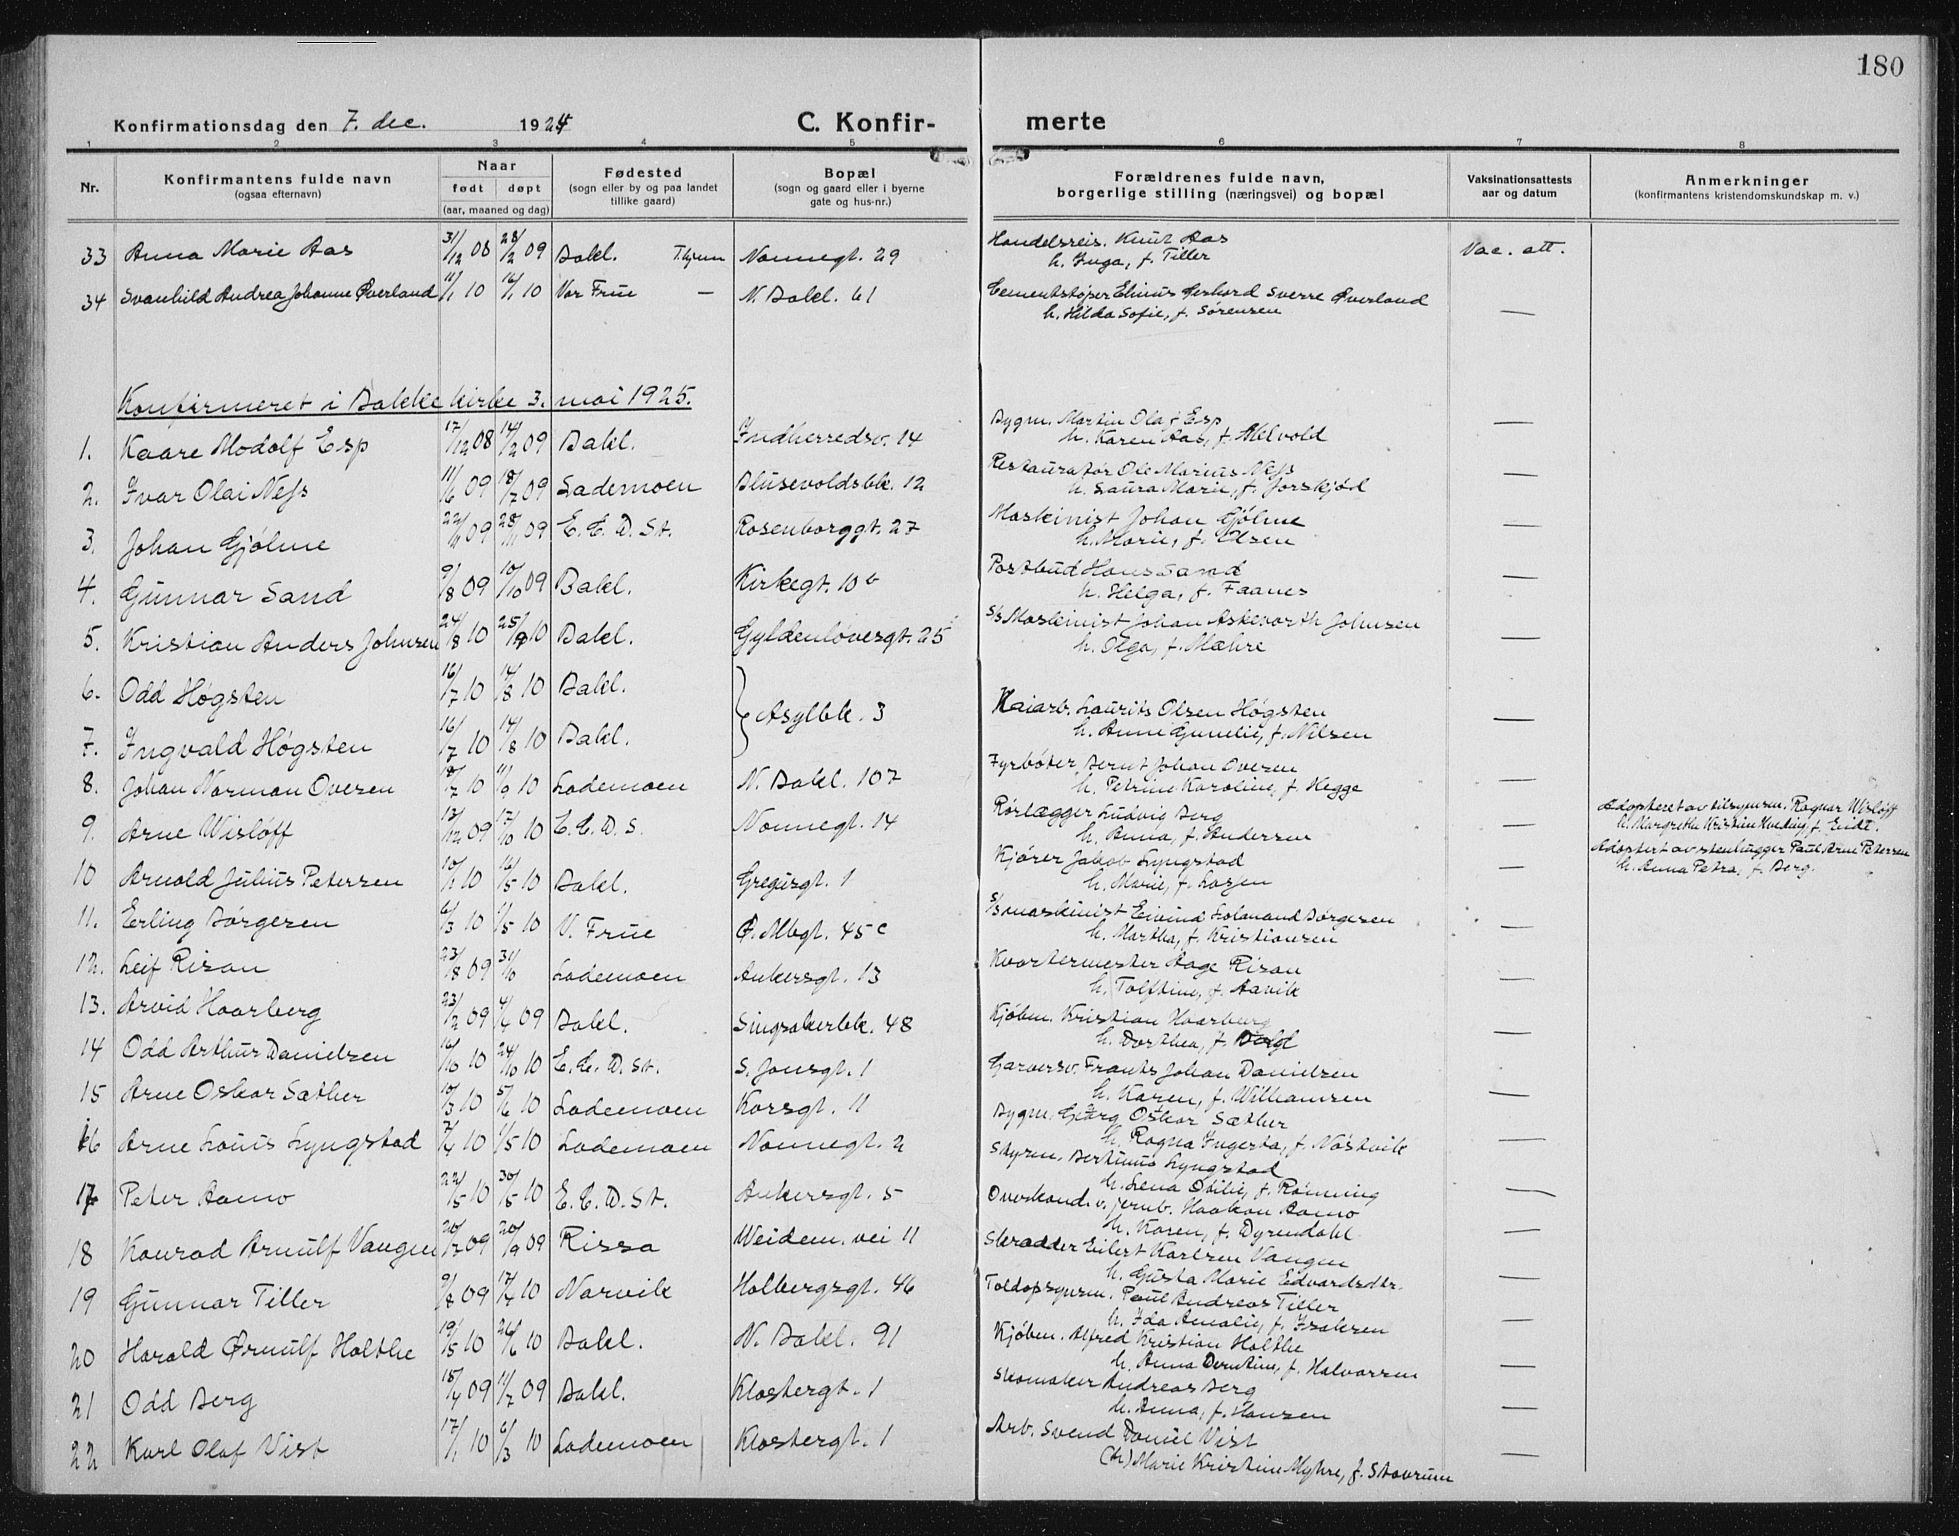 180
Konfirmationsdag den 7. dec. 1924 C. Konfirmerte
1 2 3 4 5 6 7 8
Nr. Konfirmantens fulde navn (ogsaa efternavn) Naar født døpt (aar, maaned og dag) Fødested (sogn eller by og paa landet tillike gaard) Bopæl (sogn og gaard eller i byerne gate og hus-nr.) Forældrenes fulde navn, borgerlige stilling (næringsvei) og bopæl Vaksinationsattests aar og datum Anmerkninger (konfirmantens kristendomskundskap m. v.)
33 Anna Marie Aas 31/12 08 28/2 09 Bakl. T.hjem Nonnegt. 29 Handelsreis. Knut Aas Vac. att.
h. Inga, f. Tiller
34 Svanhild Andrea Johanne Øverland 11/1 10 16/1 10 Vor Frue — N. Bakl. 61 Cementstøper Elinus Gerhard Sverre Øverland
h. Hilda Sofie, f. Sørensen —
Konfirmeret i Bakke kirke 3. mai 1925.
1. Kaare Modolf Esp 17/12 08 14/2 09 Bakl. Indherredsv. 14 Bygm. Martin Olaf Esp —
h. Karen Aas, f. Melvold
2. Ivar Olai Ness 11/6 09 18/7 09 Lademoen Blusevoldsbk. 12 Restauratør Ole Marius Ness —
h. Laura Marie, f.
3. Johan Gjølme 09 28/11 09 E. C. D. St. Rosenborggt. 27 Maskinist Johan Gjølme —
h. Marie, f. Olsen
4. Gunnar Sand 9/8 09 10/10 09 Bakl. Kirkegt. 10 b Postbud Hans Sand —
h. Helga, f. Faanes
5. Kristian Anders Johnsen 24/8 10 25/9 10 Bakl. Gyldenløvesgt. 25 S/S Maskinist Johan Askevorth Johnsen —
h. Olga, f. Mæhre
6. Odd Høgsten 16/7 10 14/8 10 Bakl.
7. Ingvald Høgsten 16/7 10 14/8 10 Bakl. } Asylbk. 3 Kaiarb. Laurits Olsen Høgsten —
h. Anne Gurelie, f. Nilsen
8. Johan Norman Ovesen 18/7 10 11/9 10 Lademoen N. Bakl. 107 Fyrbøter Bernt Johan Ovesen —
h. Petrine Karoline, f. Hegge
9. Arne Wisløff 13/12 09 17/10 10 E. C. D. S. Nonnegt. 14 Rørlægger Ludvig Berg — Adopteret av tilsynsm. Ragnar Wisløff
h. Anna, f. Andersen h. Margrethe Kristine, f. Eidt.
10 Arnold Julius Petersen 10/1 10 16/5 10 Bakl. Gregusgt. 1 Kjører Jakob Lyngstad — Adoptert av stenhugger Paul Arne Petersen
h. Marie, f. Larsen h. Anna Petra, f. Berg.
11. Erling Børgesen 6/3 10 1/5 10 V. Frue Ø. Mbgt. 45 c S/S maskinist Eivind Børgesen —
h. Martha, f. Kristiansen
12. Leif Risan 23/8 09 31/10 Lademoen Ankersgt. 13 Kvartermester Aage Risan —
h. Tolftine, f. Aavik
13. Arvid Haarberg 23/2 09 4/4 09 Bakl. Singsakerbk. 48 Kjøbm. Kristian Haarberg —
h. Dorthea, f.
14 Odd Arthur Danielsen 16/10 24/10 10 E. C. D. St. S. Jonsgt. 1 Garversv. Frants Johan Danielsen —
h. Karen, f. Wilhamsen
15 Arne Oskar Sæther 10/3 10 5/6 10 Lademoen Korsgt. 11 Bygm. Georg Oskar Sæther —
h. Ragna Ingerta, f. Nøstvik
16 Arne Louis Lyngstad 7/4 10 1/5 10 Lademoen Nonnegt. 2 Styrm. Bertinus Lyngstad —
h. Lena Otilie, f. Rønning
17 Peter Aamo 22/5 10 30/5 10 E. C. D. St. Ankersgt. 5 Overkond. v. jernb. Haakon Aamo —
h. Karen, f. Dyrendahl
18 Konrad Arnulf Vangen 20/7 09 20/9 09 Rissa Weidem. vei 11 Skrædder Eilert Karlsen Vangen —
h. Gusta Marie Edvardsdtr.
19 Gunnar Tiller 9/8 09 17/4 10 Narvik Holbergsgt. 46 Toldopsynsm. Paul Andreas Tiller —
h. Ida Amalie, f. Isaksen
20 Harald Ørnulf Holthe 19/5 10 26/6 10 Bakl. N. Bakl. 91 Kjøbm. Alfred Kristian Holthe —
h. Anna Berntine, f. Halvorsen
21 Odd Berg 18/4 09 11/7 09 Bakl. Klostergt. 1 Skomaker Andreas Berg —
h. Anna, f. Hansen
22 Karl Olaf Vist 17/1 10 6/3 10 Lademoen Klostergt. 1 Arb. Svend Daniel Vist —
(h) Marie Kristine Myhre, f. Stavrum